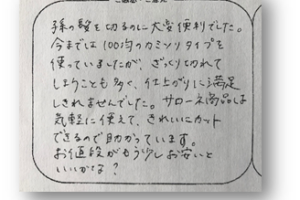 孫の髪を切るのに大変便利でした。
今までは100均のカミソリタイプを
使っていましたが、ざっくり切れて
しまうことも多く、仕上がりに満足
しきれませんでした。サローネ商品は
気軽に使えて、きれいにカット
できるので助かっています。
お値段がもう少しお安いと
いいかな？